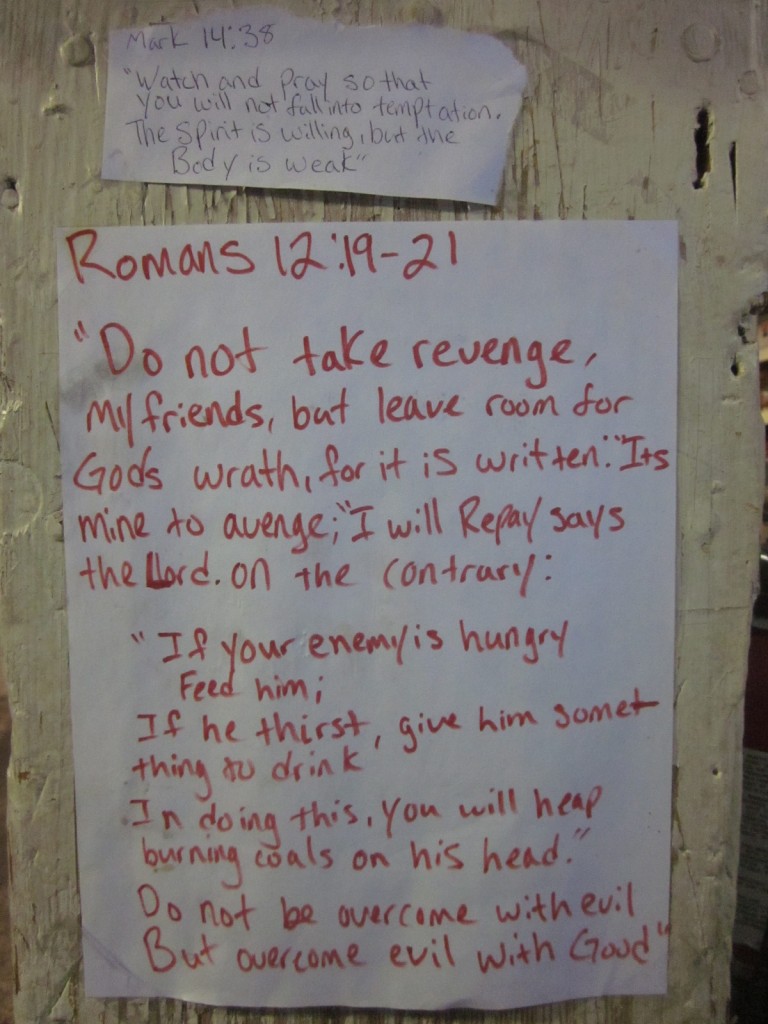 Mark 14:38
"Watch and Pray so that
you will not fall into temptation.
The Spirit is willing, but the
Body is weak"
Romans 12:19-21
"Do not take revenge,
My friends, but leave room for
Gods wrath, for it is written:"Its
mine to avenge;"I will Repay says
the Lord. on the contrary:
"If your enemy is hungry
Feed him;
If he thirst, give him somet
thing to drink
In doing this, you will heap
burning coals on his head."
Do not be overcome with evil
But overcome evil with Good"